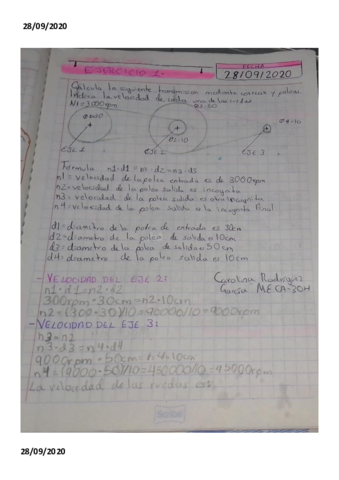 28/09/2020
EJERCICIO 1.
FECHA
28/09/2020
Calcula la siguiente transmision mediante correas y poleas
la velocidad de cada una de las ruedas
N1=3000rpm
D2=10
EJE 1
EJE 2
EJE 3
Formula n1·d1 = n2·d2 = n3·d3
n1= velocidad de la polea entrada es de 3000rpm
n2= velocidad de la polea salida es incognita
n3= velocidad de la polea salida es otra incognita
n4= velocidad de la polea salida a la incognita final
d1= diametro de la polea de entrada es 30cm
d2= diametro de la polea de salida=10cm
d3= diametro de la polea de salida=50cm
d4= diametro de la polea salida es 10cm
- VELOCIDAD DEL EJE 2:
Carolina Rodriguez
n1·d1=n2·d2
Garcia MECA-3OH
300rpm·30cm=n2·10cm
n2=(300·30)/10=90000/10=9000rpm
- VELOCIDAD DEL EJE 3:
n3=n2
n3·d3=n4·d4
9000rpm·50cm=n4·10cm
n4=(9000·50)/10=450000/10=45000rpm
La velocidad de las ruedas es:
28/09/2020